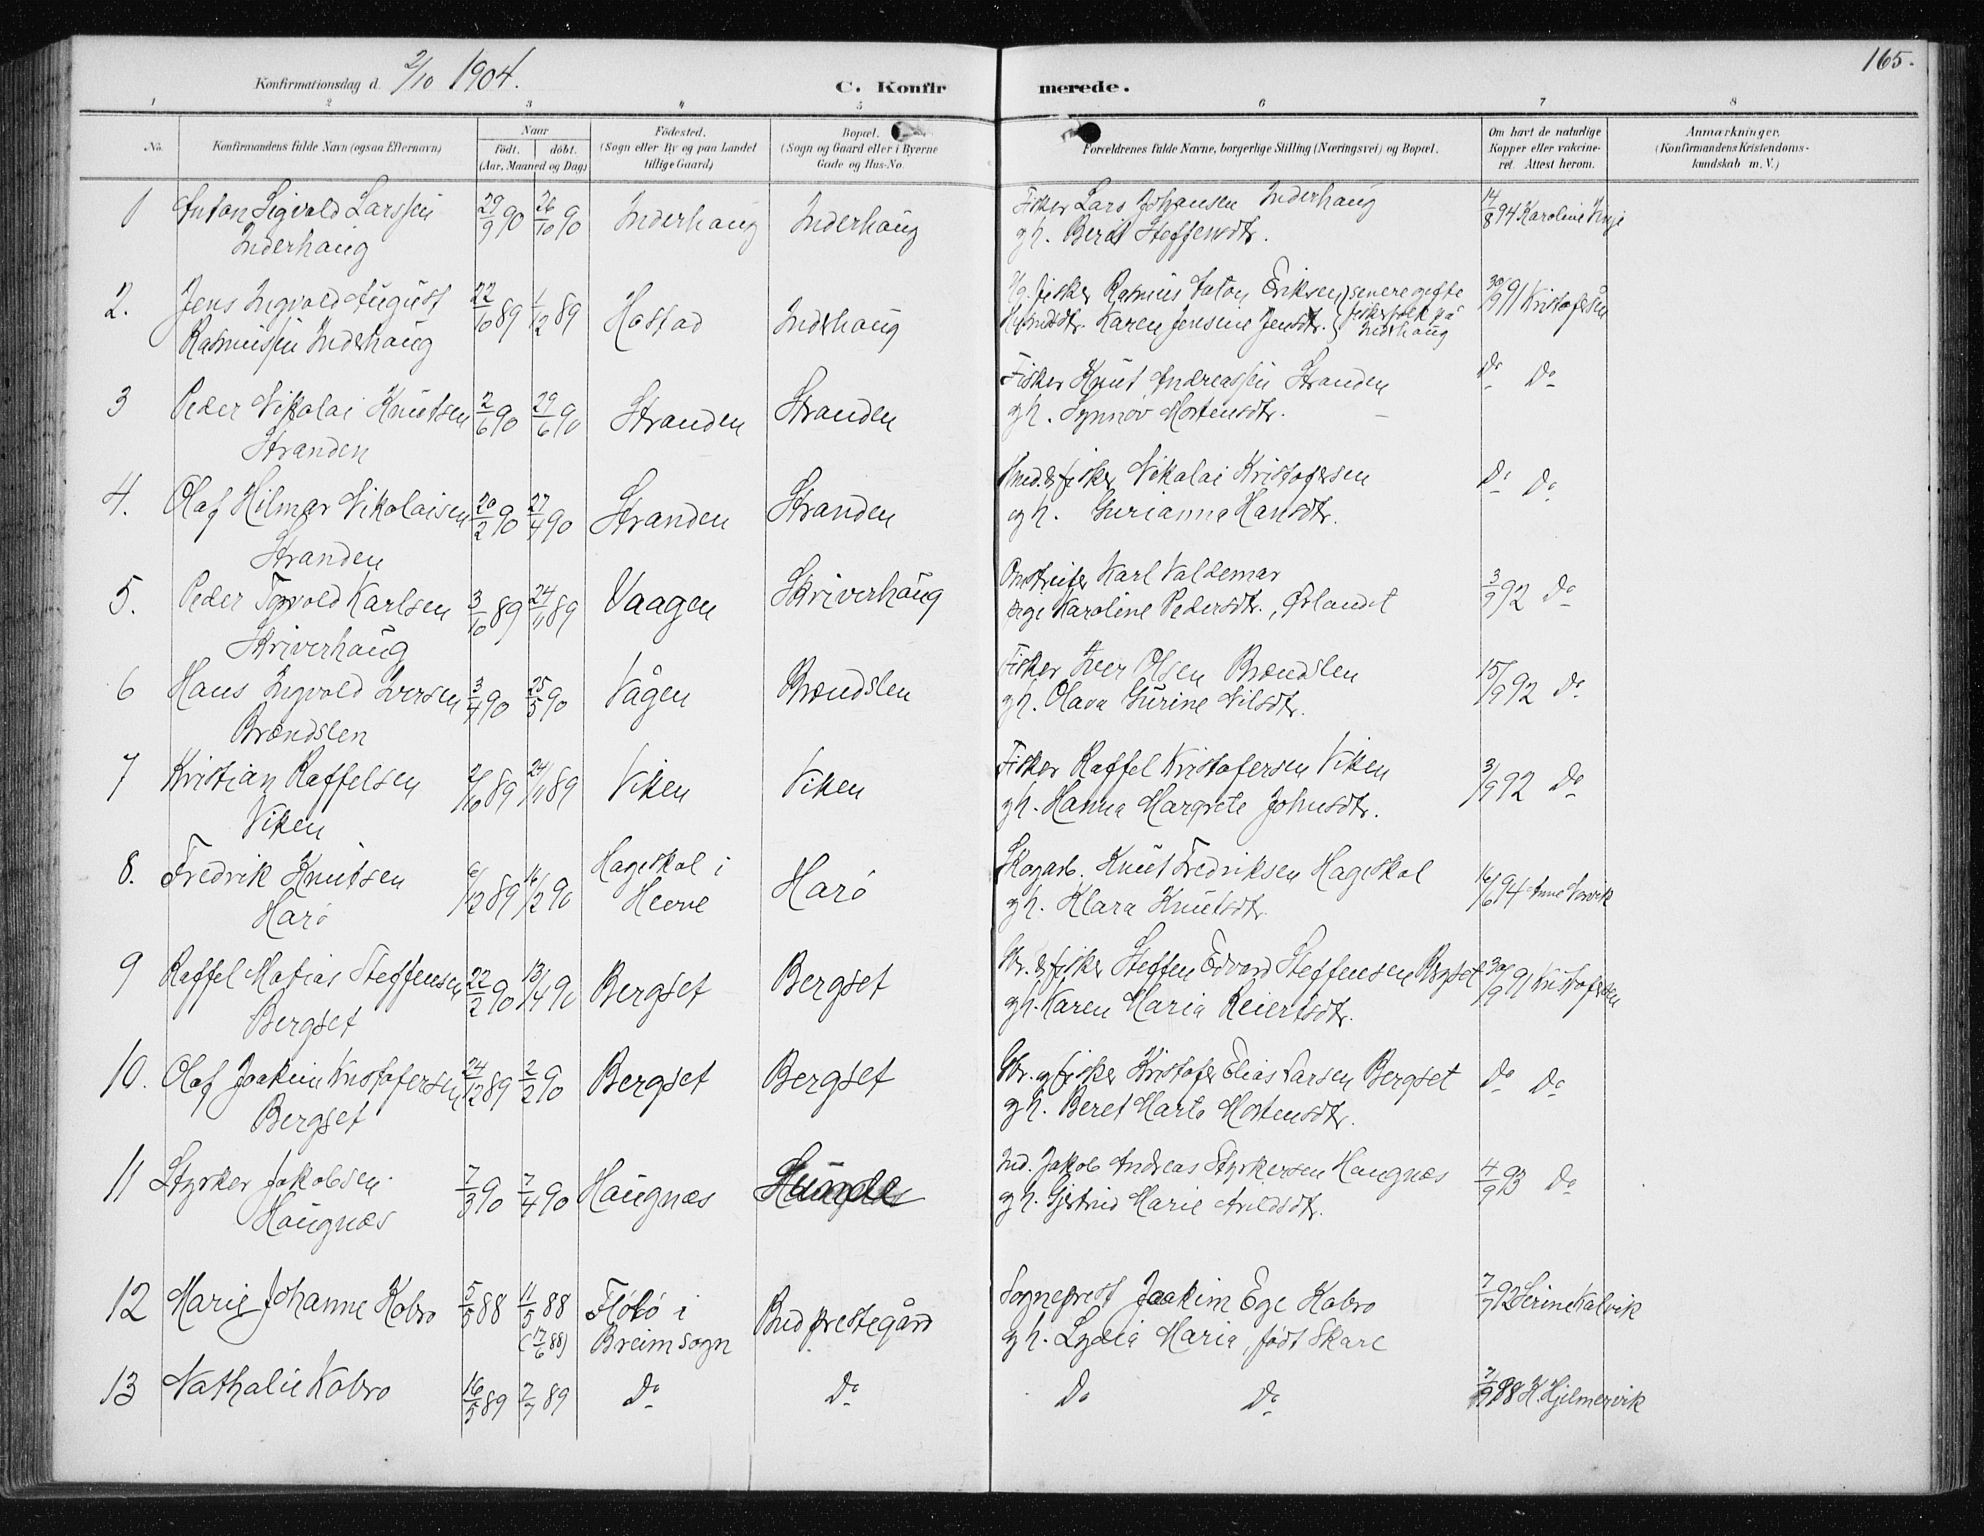 165.
Konfirmationsdag d. 2/10 1904.
C. Konfirmerede.
1 2 3 4 5 6 7 8
No.
Konfirmandens fulde Navn (ogsaa Efternavn)
Naar
født. døbt.
(Aar, Maaned og Dag)
Fødested.
(Sogn eller By og paa Landet
tillige Gaard)
Bopæl.
(Sogn og Gaard eller i Byerne
Gade og Hus-No.
Forældrenes fulde Navne, borgerlige Stilling (Næringsvei) og Bopæl.
Om havt de naturlige
Kopper eller vaccine-
ret. Attest herom.
Anmærkninger.
(Konfirmandens Kristendoms-
kundskab m. V.)
1 Anton Sigvald Larssen 29/9 90 26/10 90 Inderhaug Inderhaug Fisker Lars Johansen Inderhaug 14/8 94 Karoline
Inderhaug gh. Berit Steffensdtr.
2. Jens Ingvald August 22/10 89 1/12 89 Hostad Inderhaug fisker Rasmus Anton Eriksen senere gifte 30/9 91 Kristofersen
Rasmussen Inderhaug Karen Jensine Jensdtr. fiskerfolk på
Inderhaug
3 Peder Nikolai Knutsen 2/6 90 29/6 90 Stranden Stranden Fisker Knut Andreassen Stranden Do Do
Stranden gh. Synnøv Mortensdtr.
4. Olaf Hilmar Nikolaisen 20/2 90 27/4 90 Stranden Stranden fisker Nikolai Kristofersen Do Do
Stranden gh. Gurianna Hansdtr.
5. Peder Torvold Karlsen 3/10 89 24/11 89 Vaagen Skriverhaug Omstreifer Karl Valdemar 3/9 92 Do
Skriverhaug Karoline Pedersdtr., Ørlandet
6 Hans Ingvald Iversen 3/4 90 25/5 90 Vågen Brændslen Fisker Iver Olsen Brændslen 15/9 92 Do
Brændslen gh. Olava Gurine Nilsdtr.
7 Kristian Raffelsen 2/10 89 24/11 89 Viken Viken Fisker Raffel Kristofersen Viken 3/9 92 Do
Viken gh. Hanna Margrete Johnsdtr.
8. Fredrik Knutsen 6/12 89 16/2 90 Hageskal i Harö Skogarb. Knut Fredriksen Hageskal 16/6 94 Anne
Harö Herve gh. Klara Knutsdtr.
9 Raffel Matias Steffensen 22/2 90 13/4 90 Bergset Bergset Gbr. & fisker Steffen Edvard Steffensen Bergset 30/9 91 Kristofersen
Bergset gh. Karen Maria Reiertsdtr.
10. Olaf Joakim Kristofersen 24/12 89 2/2 90 Bergset Bergset Gbr. og fisker Kristofer Elias Larsen Bergset Do Do
Bergset gh. Beret Marta Mortensdtr.
11 Styrker Jakobsen 7/3 90 7/4 90 Haugnæs Ind. Jakob Andreas Styrkersen Haugnæs 4/9 93 Do
Haugnæs gh. Gjertrud Marie Arildsdtr.
12 Marie Johanne Kobro 5/5 88 11/5 88 Flölö i Bud prestegård Sogneprest Joakim Ege Kobro 7/7 92 Serine Kalvik
(17/6 88) Breim sogn gh. Lydia Maria, født Skare
13 Nathalie Kobro 16/5 89 7/7 89 Do Do Do Do 7/9 98 H. Hjelmervik